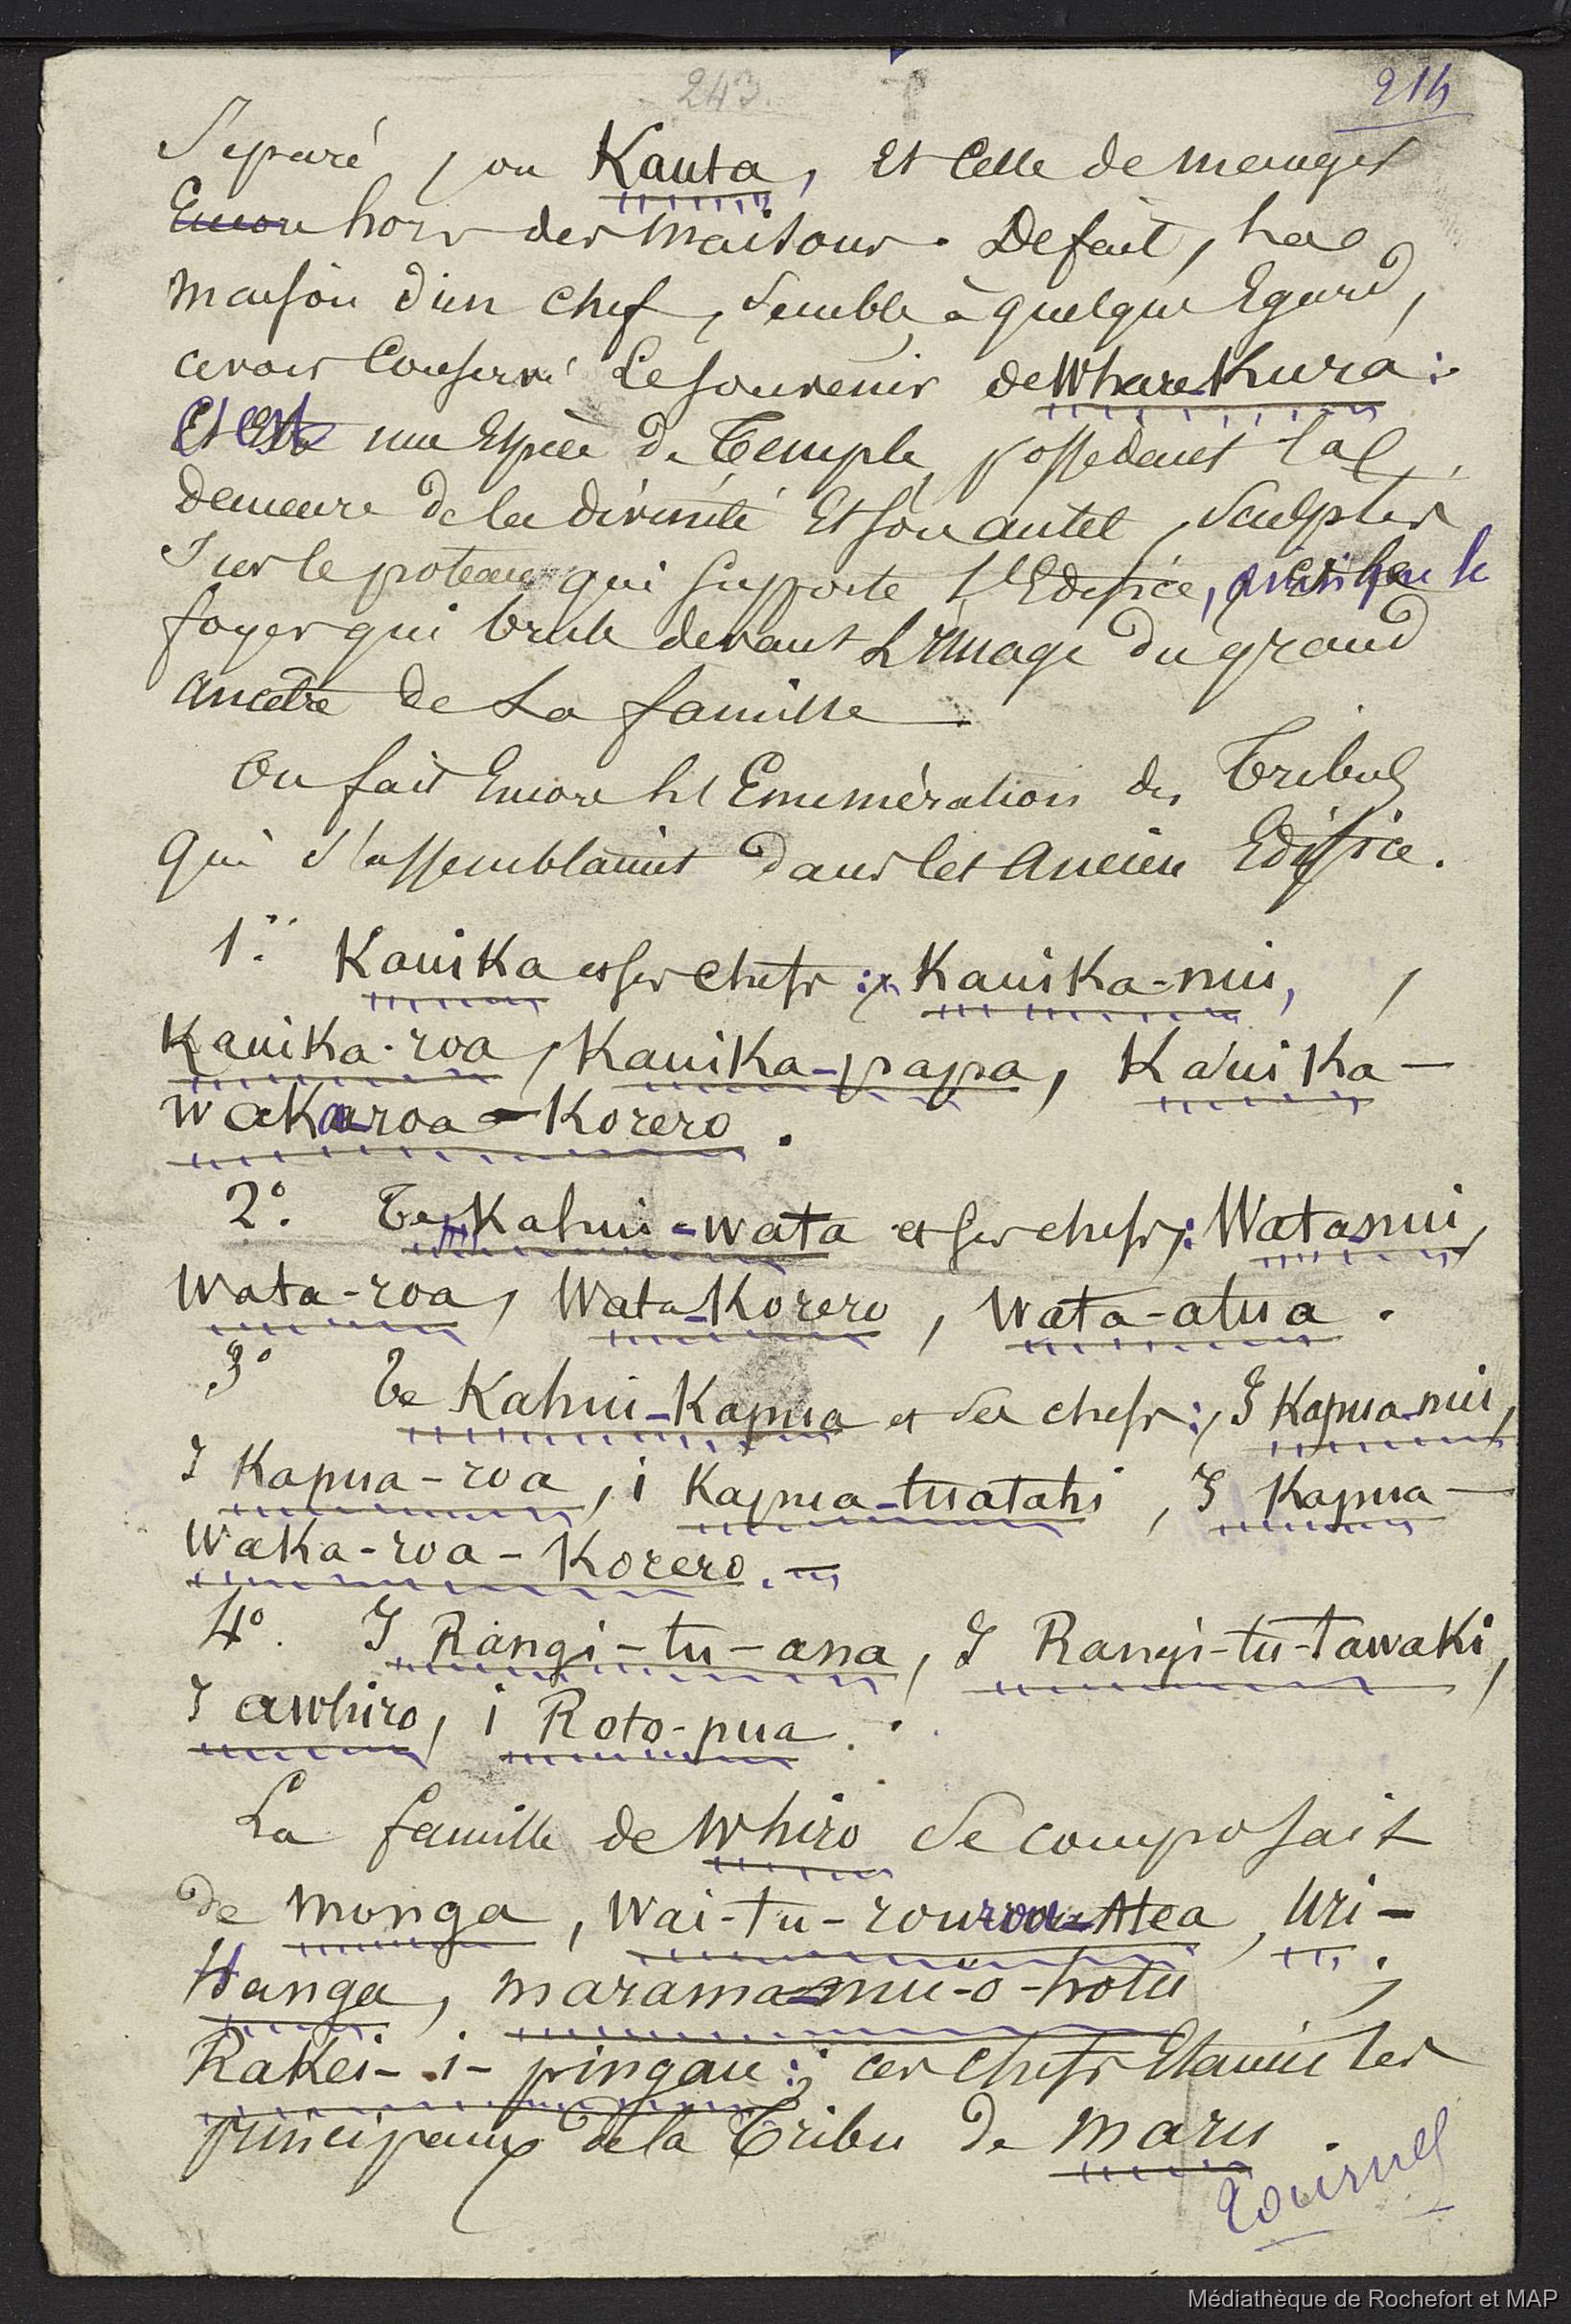 243.
214
Séparé, ou Kauta, et Celle de manger
Encore hors des maisons. De fait, La
maison d'un chef, Semble, à quelque Egard,
avoir Conservé Le souvenir de Whare-Kura :
C'est une Espèce de Temple, possedant la
demeure de la divinité Et son autel, Sculptés
Sur le poteau qui supporte l'Edifice, ainsi que le
foyer qui brule devant L'image du grand
ancêtre de La famille
On fait Encore l'Enumération des Tribus
qui s'assemblaient dans cet Ancien Edifice.
1.° Kauika et ses chefs : Kauika-nui,
Kauika-roa, Kauika-papa, Kauika-
Wakaroa-Korero.
2.° Te Kahui-wata et ses chefs : Wata-nui,
Wata-roa, Wata-Korero, Wata-atua.
3° Te Kahui-Kapua et ses chefs : I Kapua-nui,
I Kapua-roa, i Kapua-tuatahi, I Kapua-
Waka-roa-Korero. —
4°. I Rangi-tu-ana, I Rangi-tu-tawaki,
I awhiro, i Roto-pua.
La famille de Whiro Se composait
de Monga, Wai-tu-rourou-Atea, Uri-
Hanga, marama-nui-o-hotu
Rakei-i-pingau ; ces chefs Etaient les
principaux de la Tribu de Maru.
Tournez
Médiathèque de Rochefort et MAP